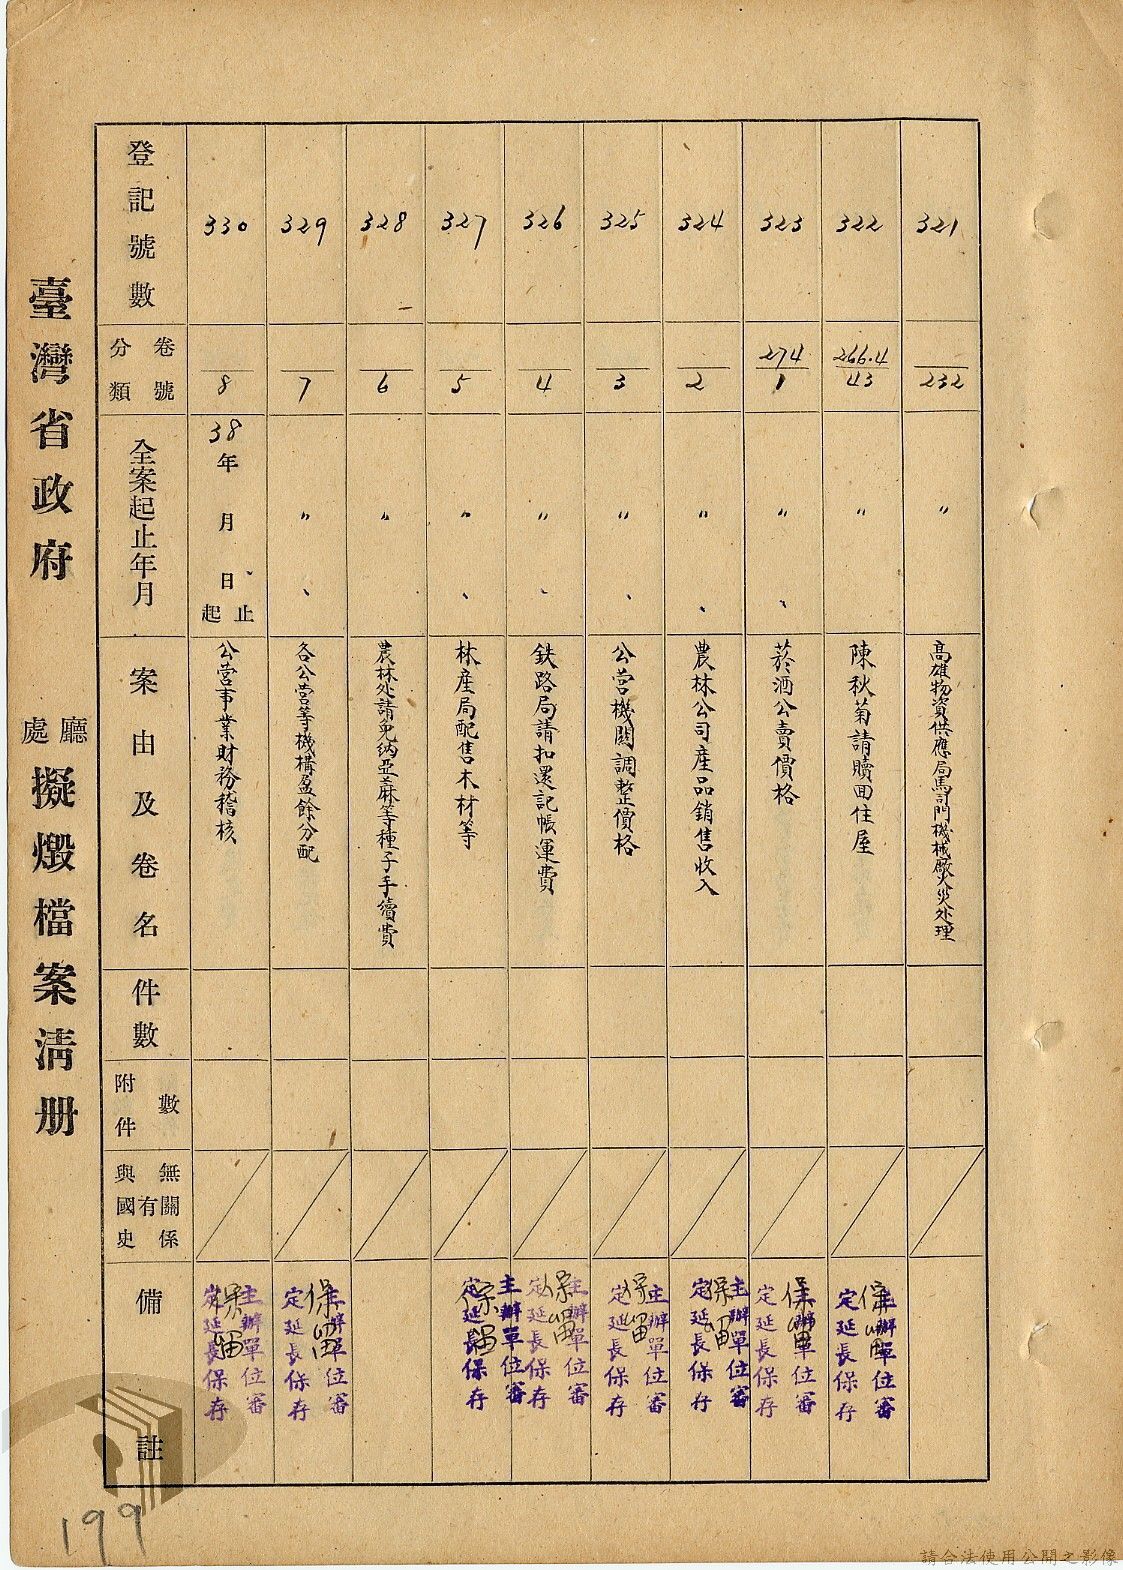 登記號數
分類
卷號
全案起止年月
案由及卷名
件數
附件
數
與國史
有
無關係
備註
321
232
〃
高雄物資供應局馬司門機械廠火災处理
322
266.4
43
〃
陳秋菊請贖回住屋
主辦單位審
定延長保存
保留
323
274
1
〃
菸酒公賣價格
主辦單位審
定延長保存
保留
324
2
〃
農林公司産品銷售收入
主辦單位審
定延長保存
保留
325
3
〃
公营機関調整價格
主辦單位審
定延長保存
保留
326
4
〃
鉄路局請扣還記帳運費
主辦單位審
定延長保存
保留
327
5
〃
林産局配售木材等
主辦單位審
定延長保存
保留
328
6
〃
農林处請免納亞蔴等種子手續費
329
7
〃
各公营等機構盈餘分配
主辦單位審
定延長保存
保留
330
8
38年
月
日
起止
公营事業財務稽核
主辦單位審
定延長保存
保留
臺灣省政府
廳
處
擬燬檔案清册
199
請合法使用公開之影像